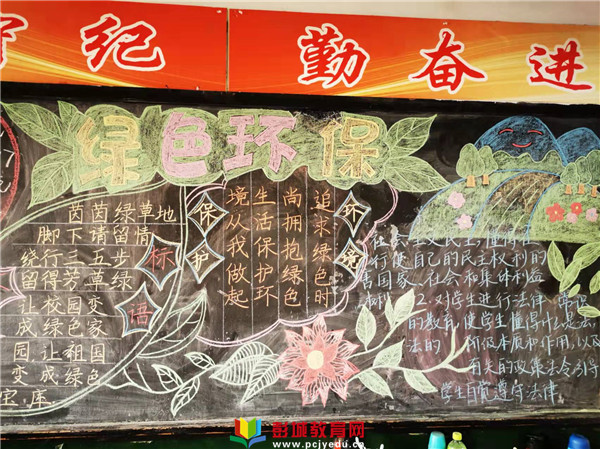 纪 勤奋 进
绿色环保
茵茵绿草地
脚下请留情
绕行三五步
留得芳草绿
让校园变
成绿色家
园让祖国
变成绿色
宝库
标语
环境
保护
追求绿色时
尚拥抱绿色
生活保护环
境从我做起
社会主义民主,懂得在
行使自己的民主权利的
害国家、社会和集体利益
2.对学生进行法律常识
的教育,使学生懂得什么是法
法的 阶级本质和作用,以及
有关的政策法令引导
学生自觉遵守法律.
彭城教育网
www.pcjyedu.cn